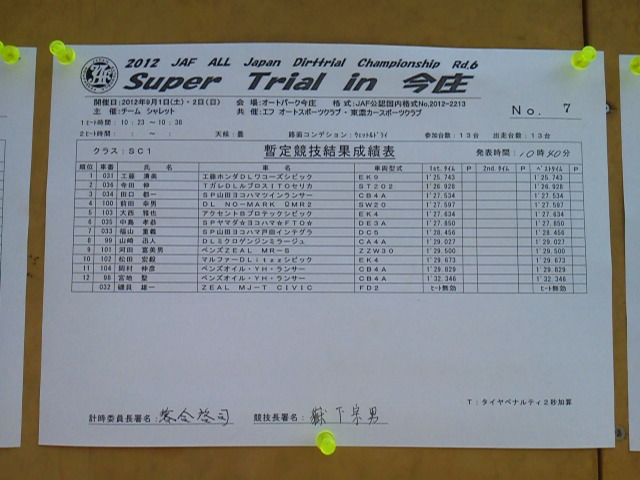 2012 JAF ALL Japan Dirttrial Championship Rd.6
Super Trial in 今庄
開催日:2012年9月1日(土)・2日(日) 会 場:オートパーク今庄 格 式:JAF公認国内格式No.2012-2213
主 催:チーム シャレット 共 催:エフ オートスポーツクラブ・東濃カースポーツクラブ No. 7
1ヒート時間: 10:23 ～ 10:38
2ヒート時間: : ～ : 天候:曇 路面コンデション:ウェット&ドライ 参加台数:13台 出走台数:13台
クラス:SC1 暫定競技結果成績表 発表時間:10時40分
順位 車番 氏 名 車 名 車両型式 1st.タイム P 2nd.タイム P ベストタイム
1 031 工藤 清美 工藤ホンダDLワコーズシビック EK9 1'25.743 1'25.743
2 036 寺田 伸 TガレDLルブロスITOセリカ ST202 1'26.928 1'26.928
3 034 田口 都一 SP山田ヨコハマツインランサー CB4A 1'27.534 1'27.534
4 100 前田 幸男 DL NO-MARK QMR2 SW20 1'27.597 1'27.597
5 103 大西 雅也 アクセントBプロテックシビック EK4 1'27.634 1'27.634
6 035 中島 孝恭 SPヤマダ☆ヨコハマ☆FTO☆ DE3A 1'27.850 1'27.850
7 033 福山 重義 SP山田ヨコハマ戸田インテグラ DC5 1'28.456 1'28.456
8 99 山崎 迅人 DLミクロゲンジンミラージュ CA4A 1'29.027 1'29.027
9 101 河田 富美男 ベンズZEAL MR-S ZZW30 1'29.500 1'29.500
10 102 松田 宏毅 マルファーDLitzzシビック EK4 1'29.673 1'29.673
11 104 岡村 伸彦 ペンズオイル・YH・ランサー CB4A 1'29.829 1'29.829
12 98 宮地 聖 ペンズオイル・YH・ランサー CB4A 1'32.346 1'32.346
032 磯貝 雄一 ZEAL MJ-T CIVIC FD2 ヒート無効 ヒート無効
T:タイヤペナルティ2秒加算
計時委員長署名: 落合啓司 競技長署名: 嶽下宗男